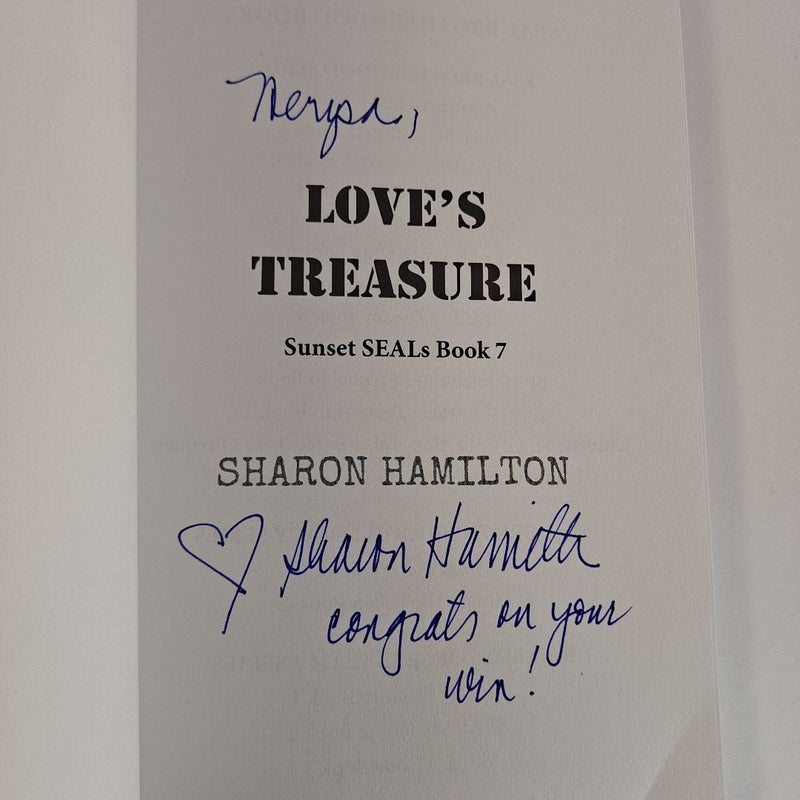 Nerysa,
LOVE'S
TREASURE
Sunset SEALs Book 7
SHARON HAMILTON
Sharon Hamilton
congrats on your
win!